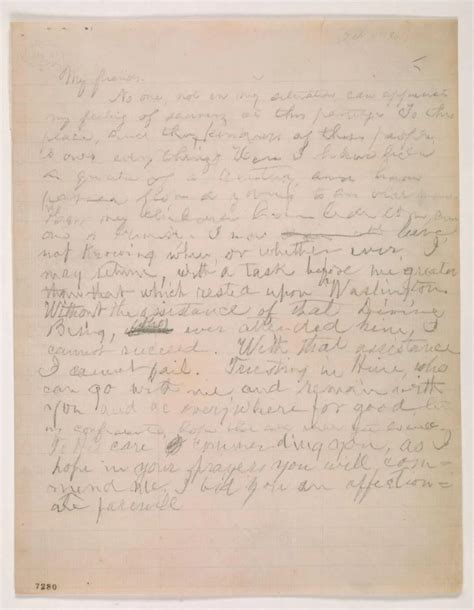 My friends.
No one, not in my situation, can appreciate
my feeling of sadness at this parting. To this
place, and the kindness of these people,
I owe every thing. Here I have lived
a quarter of a century, and have
passed from a young to an old man.
Here my children have been born, and
one is buried. I now leave,
not knowing when, or whether ever, I
may return, with a task before me greater
than that which rested upon Washington.
Without the assistance of that Divine
Being, ever attended him, I
cannot succeed. With that assistance
I cannot fail. Trusting in Him, who
can go with me and remain with
you and be every where for good, let
us confidently hope that all will yet be
To His care commending you, as I
hope in your prayers you will com-
mend me, I bid you an affection-
ate farewell
7280